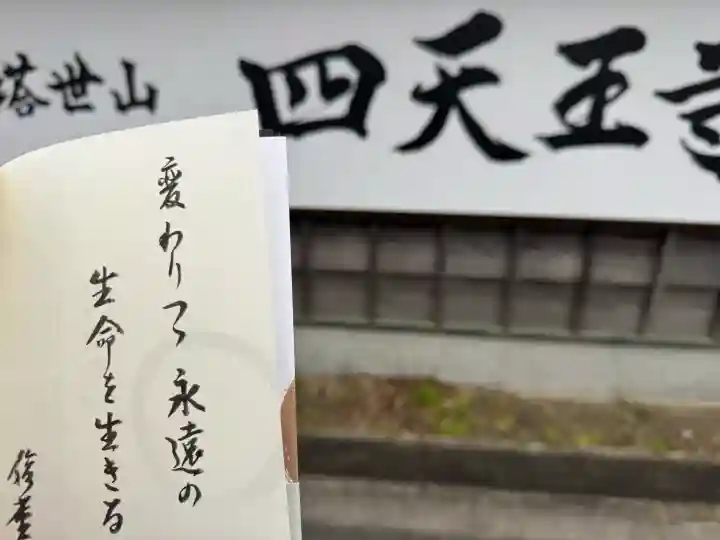 塔世山 四天王寺
変わりつつ永遠の
生命を生きる